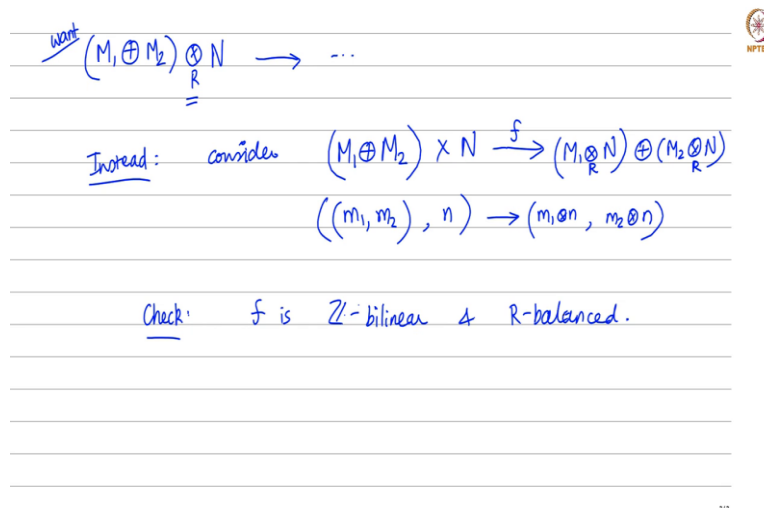 want (M₁ ⊕ M₂) ⊗_R N → ...
Instead: consider (M₁ ⊕ M₂) × N →^f (M₁ ⊗_R N) ⊕ (M₂ ⊗_R N)
((m₁, m₂), n) → (m₁ ⊗ n, m₂ ⊗ n)
Check: f is ℤ-bilinear & R-balanced.
NPTE